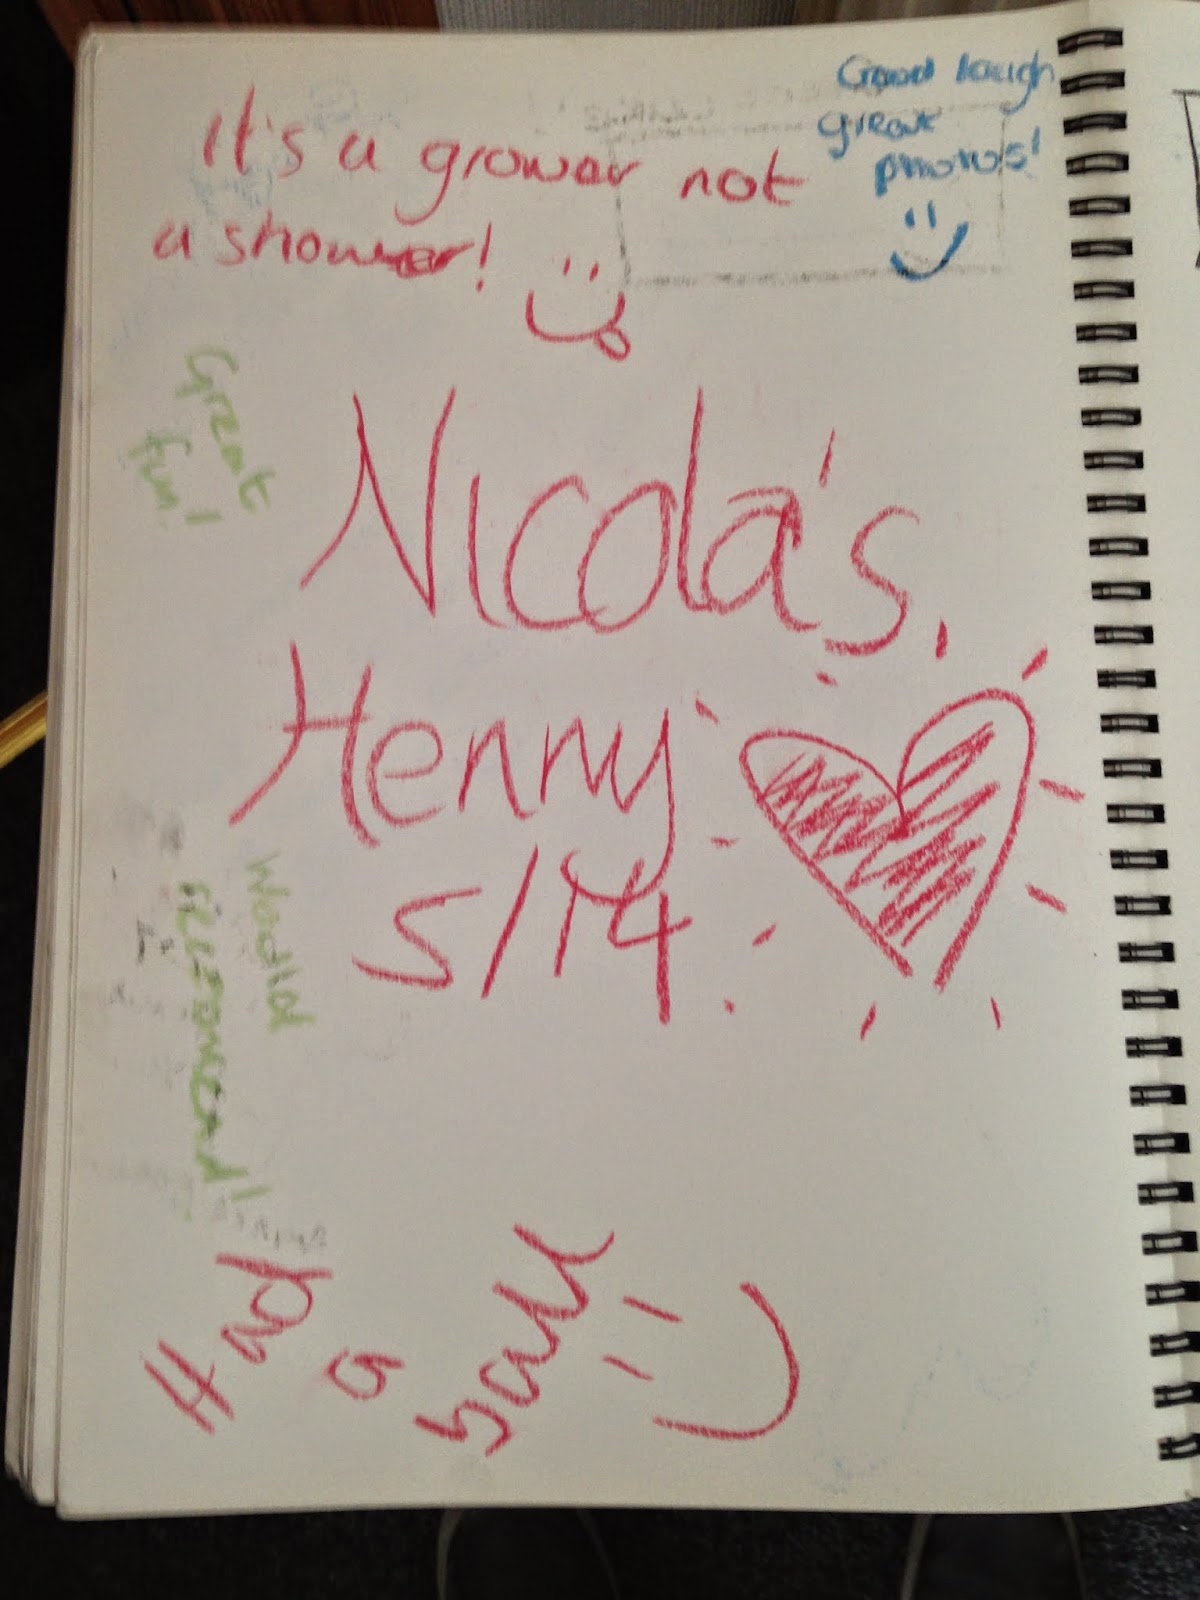 Good laugh
great
photos!
It's a grower not
a shower!
Great
fun!
Nicola's
Henny
5/14
Would
RECOMEND!
Had
a
ball